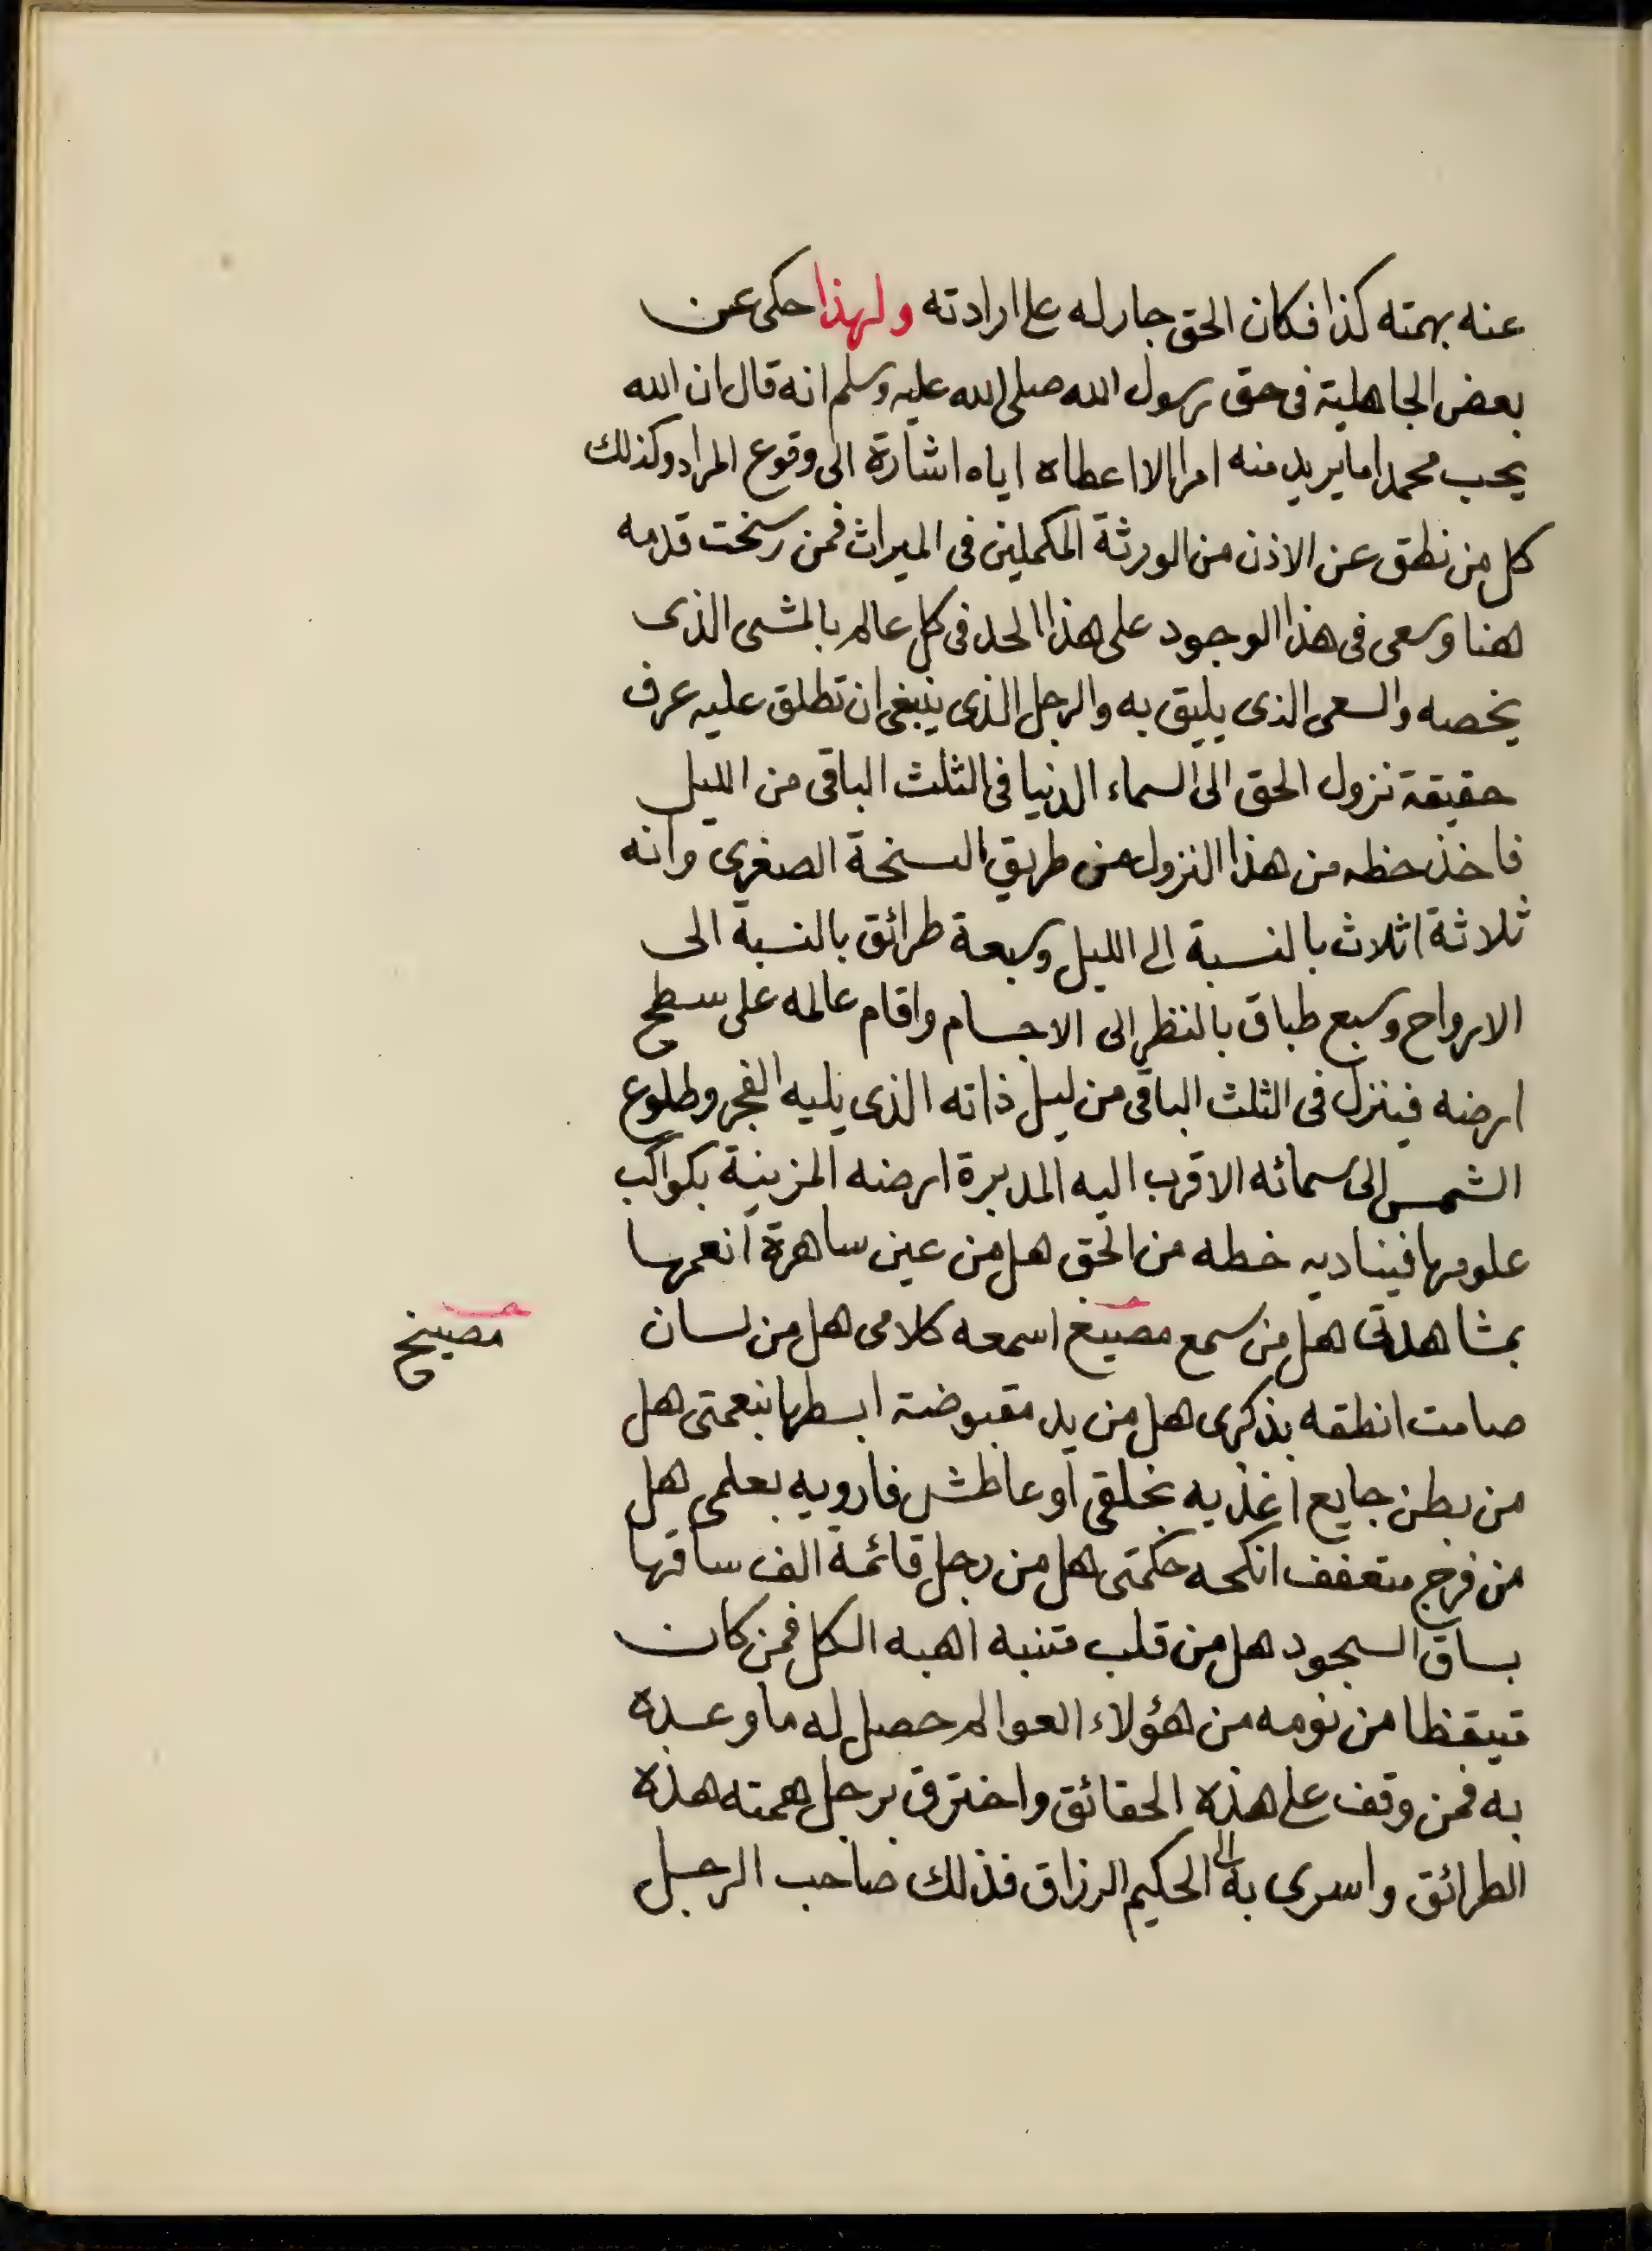 عنه بهمته كذا فكان الحق جار له على ارادته ولهذا حكى عن
بعض الجاهلية فى حق رسول الله صلى الله عليه وسلم انه قال ان الله
يحب محمدا ما يريد منه امرا الا اعطاه اياه اشارة الى وقوع المراد وكذلك
كل من نطق عن الاذن من الورثة المكملين فى الميراث فمن رسخت قدمه
هنا وسعى فى هذا الوجود على هذا الحد فى كل عالم بالمشى الذى
يخصه والسعى الذى يليق به والرجل الذى ينبغى ان تطلق عليه عرف
حقيقة نزول الحق الى السماء الدنيا فى الثلث الباقى من الليل
فاخذ حظه من هذا النزول من طريق النسخة الصغرى وانه
ثلاثة اثلاث بالنسبة الى الليل وسبعة طرائق بالنسبة الى
الارواح وسبع طباق بالنظر الى الاجسام واقام عالمه على سطح
ارضه فينزل فى الثلث الباقى من ليل ذاته الذى يليه الفجر وطلوع
الشمس الى سمائه الاقرب اليه المدبرة ارضه المزينة بكواكب
علومها فيناديه خطه من الحق هل من عين ساهرة انعمها
بمشاهدتى هل من سمع مصيغ اسمعه كلامى هل من لسان
مصيخ
صامت انطقه بذكرى هل من يد مقبوضة ابسطها بنعمتى هل
من بطن جايع اغذيه بخلقى او عاطش فارويه بعلمى هل
من فرج متعفف انكحه حكمتى هل من رجل قائمة الف ساقها
بساق السجود هل من قلب متنبه اهبه الكل فمن كان
تيقظا من نومه من هؤلاء العوالم حصل له ما وعده
به فمن وقف على هذه الحقائق واخترق برجل همته هذه
الطرائق واسرى به الى الحكيم الرزاق فذلك صاحب الرجل